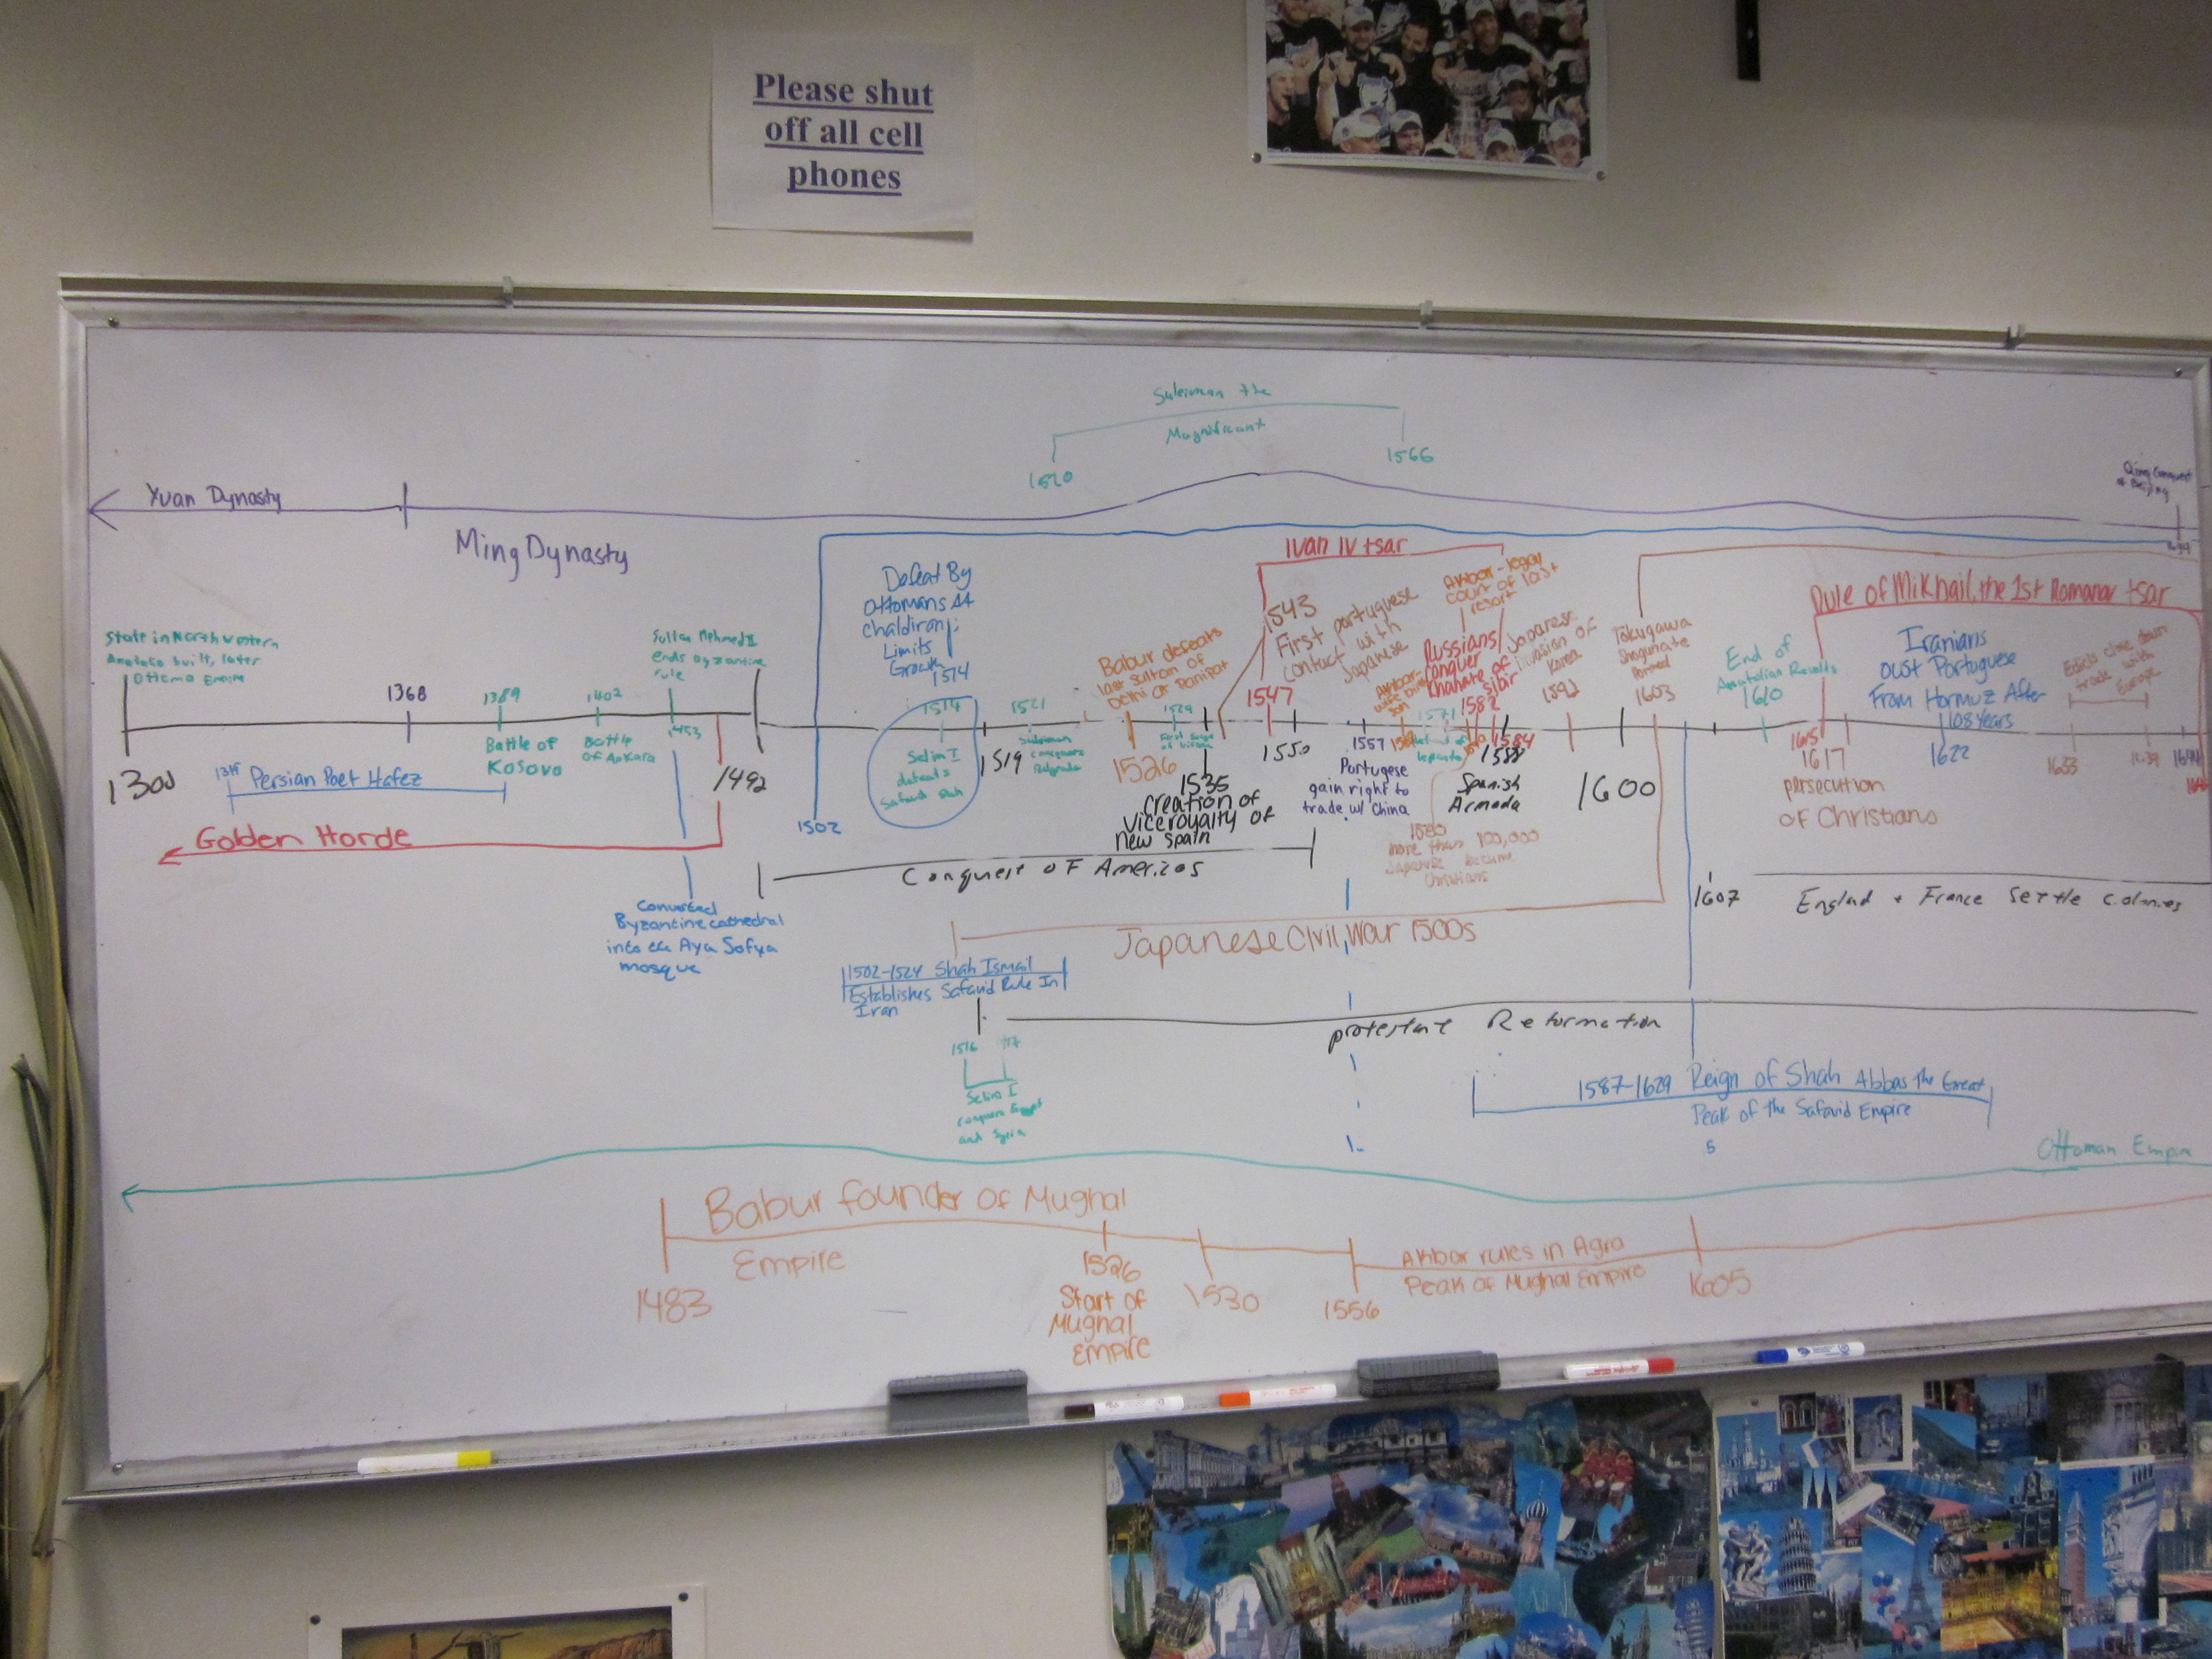 Please shut
off all cell
phones
Suleiman the
Magnificant
1520
1566
Yuan Dynasty
Ming Dynasty
Qing Conquest
of Beijing
State in Northwestern
Anatolia built, later
Ottoma Empire
1300
1368
1389
Battle of
Kosovo
1402
Battle
of Ankara
Sultan Mehmed II
ends byzantine
rule
1453
Persian Poet Hafez
Golden Horde
1492
Converted
Byzantine cathedral
into the Aya Sofya
mosque
1502
Defeat By
Ottomans At
Chaldiran;
Limits
Growth
1514
1514
Selim I
defeats
Safavid Shah
1519
1521
Suleiman
conquers
Belgrade
Babur defeats
last sultan of
Delhi at Panipat
1526
1529
First Siege
of Vienna
1535
Creation of
Viceroyalty of
new spain
Conquest of Americas
Ivan IV tsar
1543
First portuguese
contact with
Japanese
1547
1550
1557
Portugese
gain right to
trade w/ China
Akbar-legal
court of last
resort
Russians
conquer
Khanate of
Sibir
1571
1582
1584
1588
Spanish
Armada
1580
more than 100,000
Japanese became
Christians
Japanese
invasion of
Korea
1592
1600
Tokugawa
Shogunate
formed
1603
1607
England + France Settle Colonies
End of
Anatolian Revolts
1610
Rule of Mikhail, the 1st Romanov tsar
1615
1617
persecution
of Christians
Iranians
oust Portuguese
From Hormuz After
108 years
1622
Edicts close down
trade with
Europe
1633
1639
1644
Japanese Civil War 1500s
1502-1524 Shah Ismail
Establishes Safavid Rule In
Iran
Protestant Reformation
1516
17
Selim I
conquers Egypt
and Syria
1587-1629 Reign of Shah Abbas the Great
Peak of the Safavid Empire
5
Ottoman Empire
Babur founder of Mughal
Empire
1483
1526
Start of
Mughal
Empire
1530
1556
Akbar rules in Agra
Peak of Mughal Empire
1605